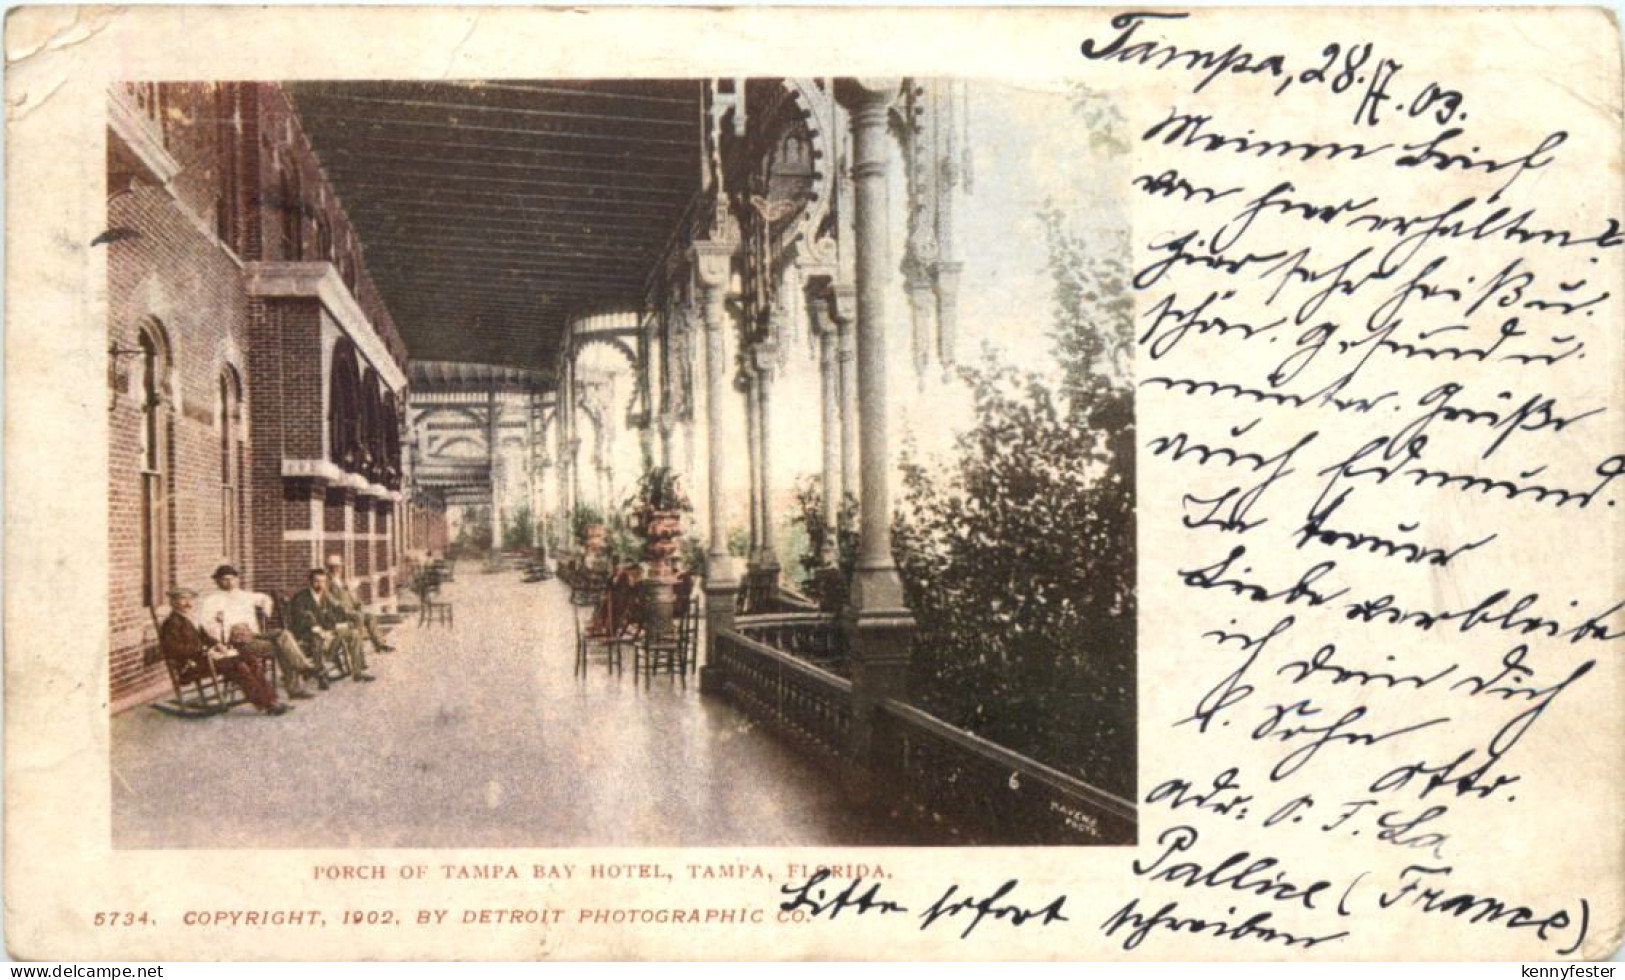 Tampa, 28./7. 03.
Meinen Brief
von hier erhalten?
Hier sehr heiß u.
schön. Gesund u.
munter. Grüße
auch Edmund.
In treuer
Liebe verbleibe
ich Dein Dich
l. Sohn
Otto.
Adr: P. F. La
Pallice (France)
Bitte sofort schreiben
6
RAVENS
PHOTO.
PORCH OF TAMPA BAY HOTEL, TAMPA, FLORIDA.
5734. COPYRIGHT, 1902, BY DETROIT PHOTOGRAPHIC CO.
www.delcampe.net
kennyfester